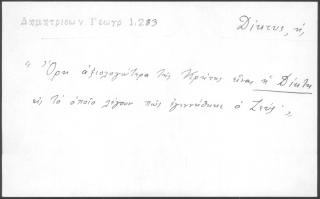 Δημητρίου Γεωγρ 1.283
Δίκτυς, ἡ
"Ὄρη ἀξιολογώτερα τῆς Κρήτης εἶναι ἡ Δίκτη
εἰς τὸ ὁποῖο λέγουν πῶς ἐγεννήθηκε ὁ Ζεύς"